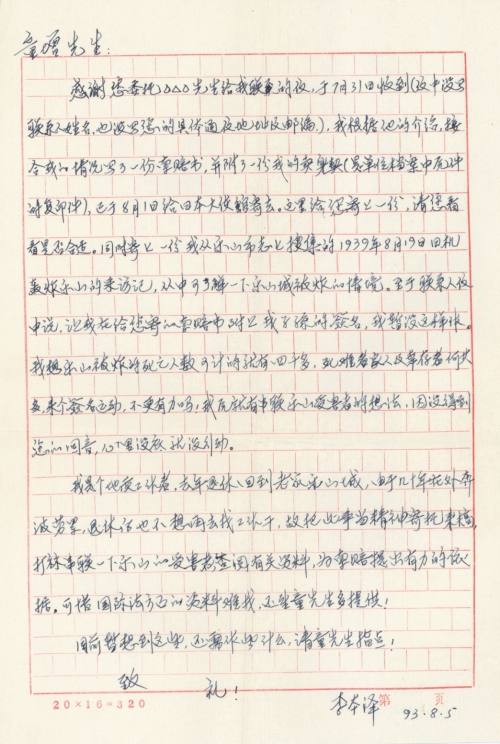 童增先生:
感谢您委托△△△先生给我联系的信,于7月31日收到(信中没写
联系人姓名,也没写您的具体通信地址及邮编),我根据他的介绍,接
合我的情况写了一份索赔书,并附了一份我的卖身契(是单位档案中原件
的复印件),已于8月1日给日本大使馆寄去。这里给您寄上一份,请您看
看是否合适。同时寄上一份我从乐山市志上搜集的1939年8月19日日机
轰炸乐山的采访记,从中可了解一下乐山城被炸的情境。至于联系人信
中说,让我在给您寄的索赔书附上我了缘的签名,我暂没这样做。
我想乐山被炸的死亡人数可计的就有四千多,死难者家人及幸存者何其
多,来个签名运动,不更有力吗!我原就有串联乐山受害者的想法,因没得到
您的回音,心里没底就没行动。
我是个地质工作者,去年退休回到老家乐山城,由于几十年在外奔
波劳累,退休后也不想再去找工作干,故把此事当精神寄托来搞,
打算串联一下乐山的受害者查阅有关资料,为索赔提出有力的依
据。可惜国际法方面的资料难找,还望童先生多提供!
目前暂想到这些,还需作些什么,请童先生指点!
致
礼!
李本泽
93.8.5
20×16=320 第 页